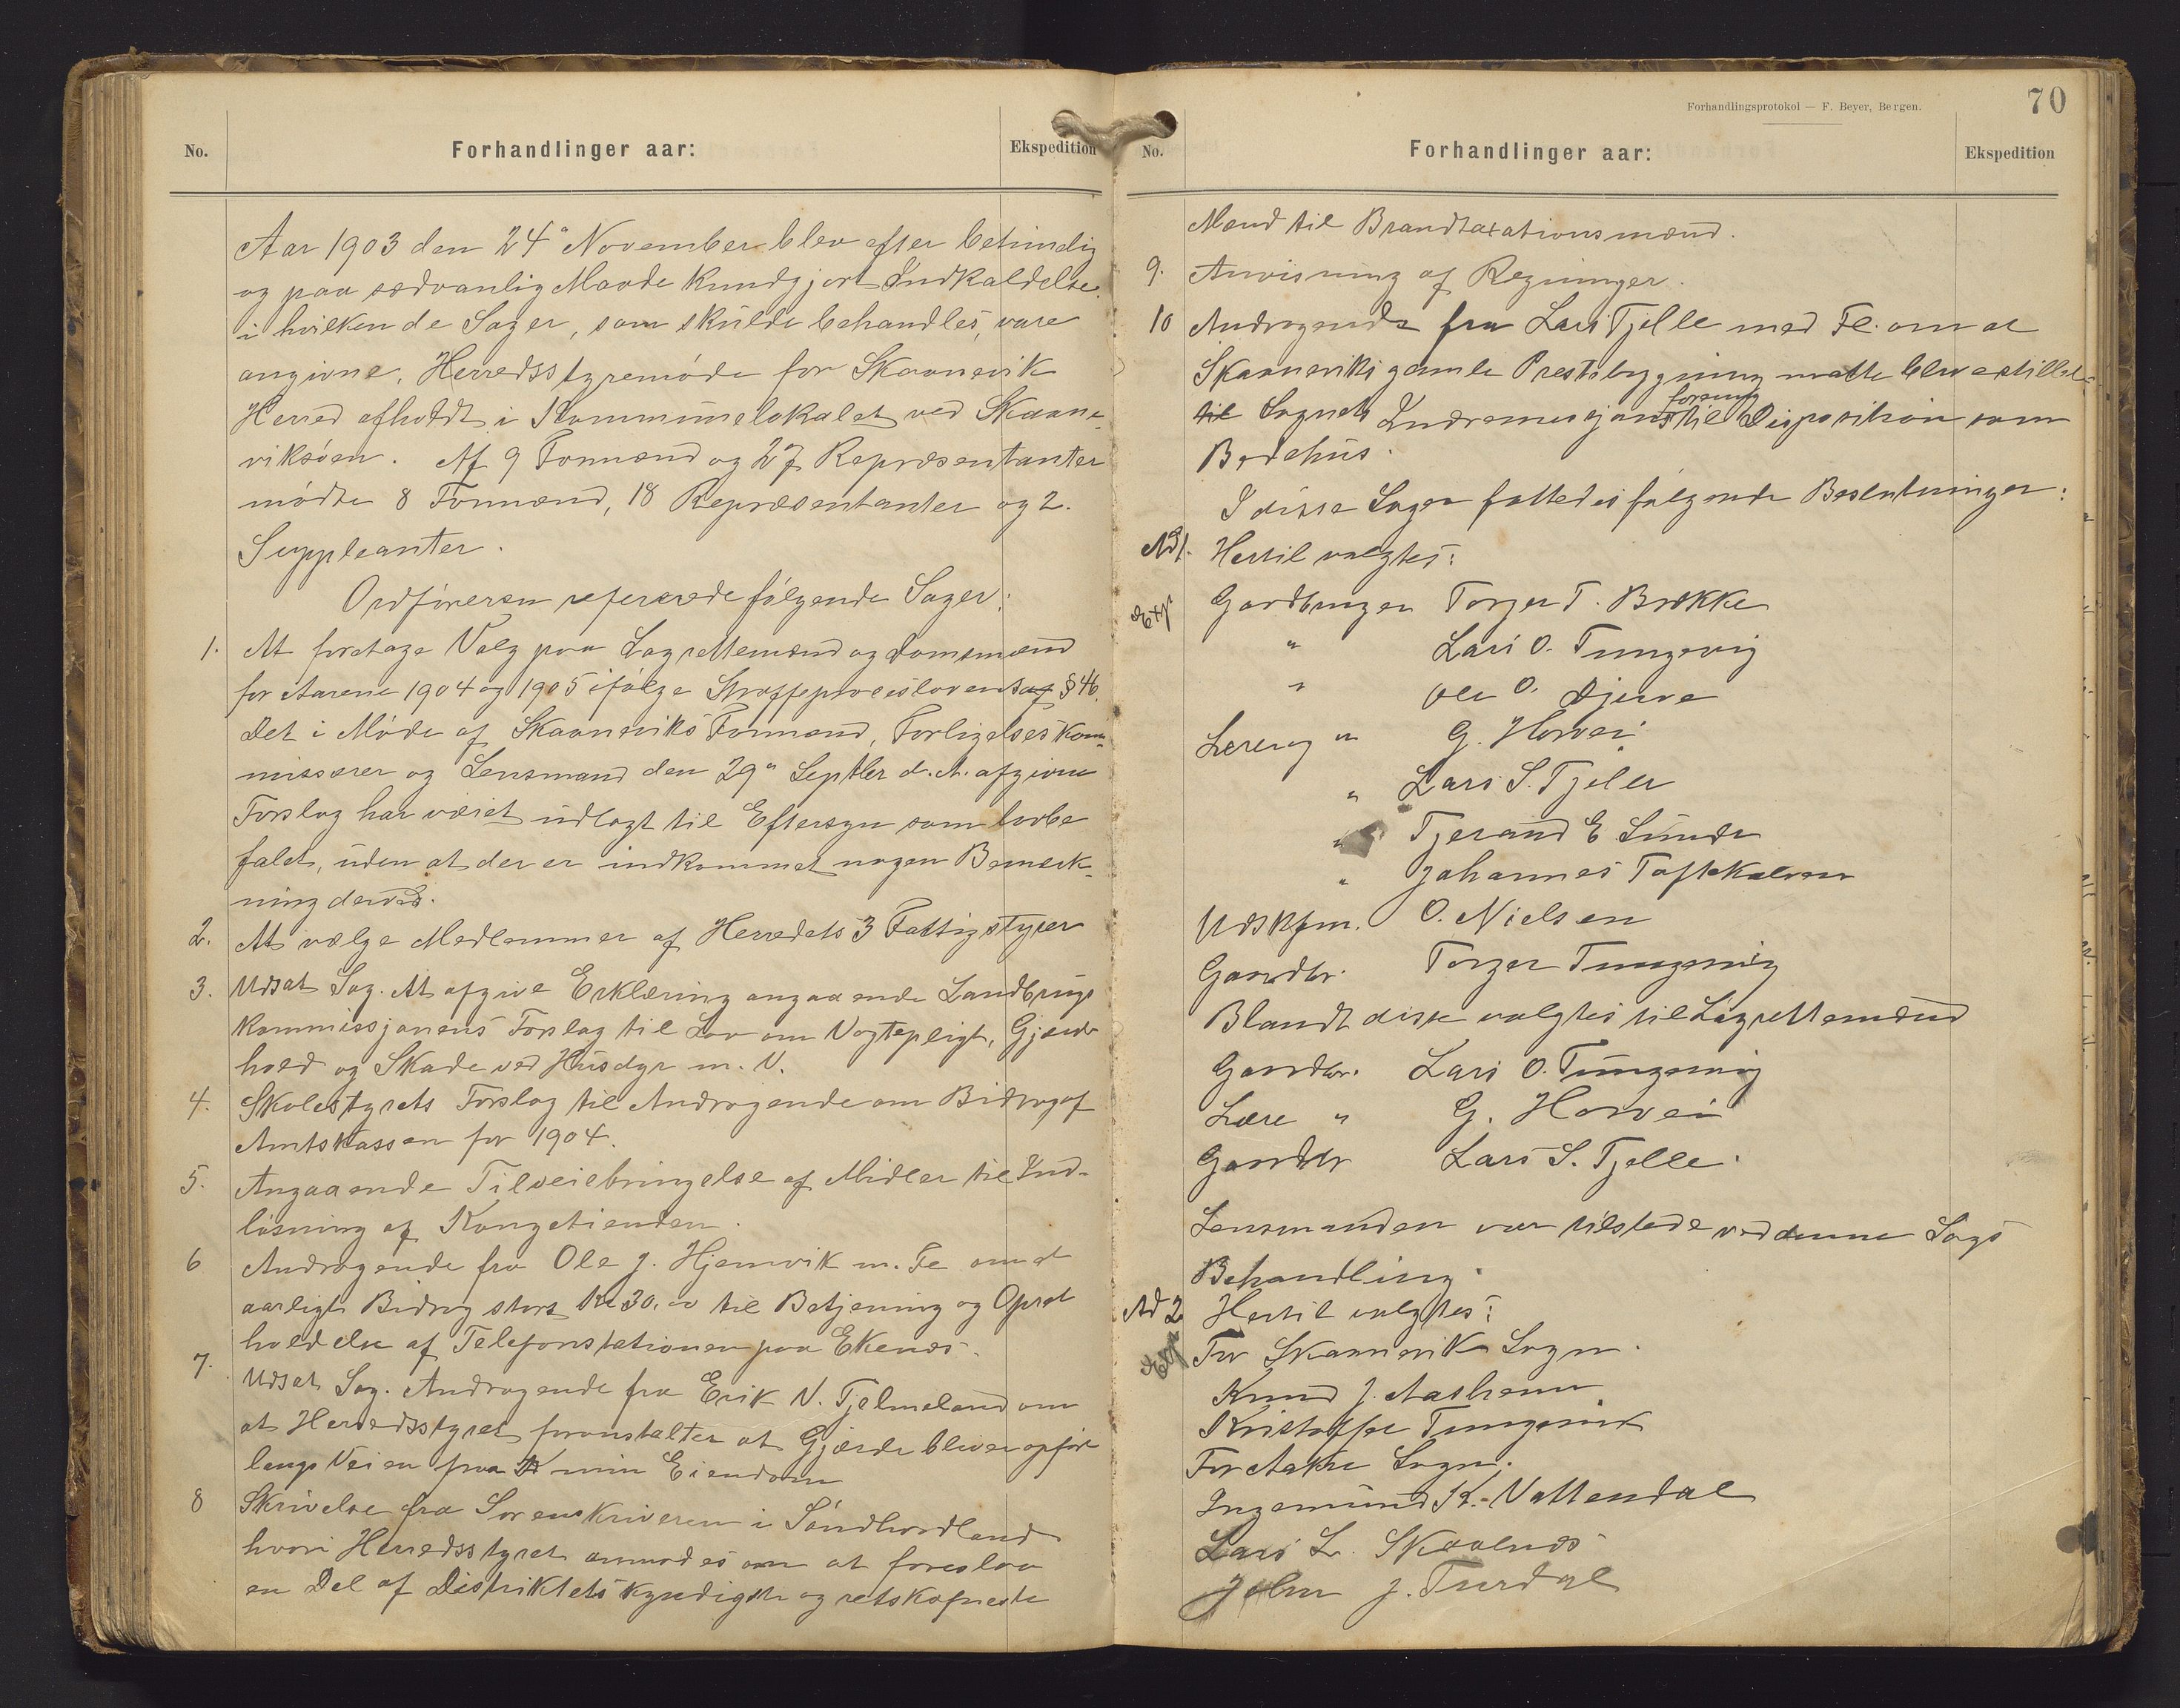 No.
Forhandlinger aar:
Ekspedition
Aar 1903 den 24de November blev efter betimelig
og paa sædvanlig Maade kundgjort Indkaldelse
i hvilken de Sager, som skulde behandles, vare
angivne, Herredsstyremöde for Skaanevik
Herred afholdt i Kommunelokalet ved Skaane-
viksöen. Af 9 Formænd og 27 Repræsentanter
mödte 8 Formænd, 18 Repræsentanter og 2
Suppleanter.
Ordföreren refererede fölgende Sager:
1. At foretage Valg paa Lagrettemænd og Domsmænd
for Aarene 1904 og 1905 ifölge Straffeproceslovens § 46.
Det i Möde af Skaaneviks Formænd, Forligelseskom-
missærer og Lensmand den 29de Septbr d. A. afgivne
Forslag har været udlagt til Eftersyn som lovbe
falet, uden at der er indkommet nogen Bemærk-
ning derved.
2. At vælge Medlemmer af Herredets 3 Fattigstyrer
3. Udsat Sag. At afgive Erklæring angaaende Landbrugs
kommissjonens Forslag til Lov om Vogtepligt, Gjærde
hold og Skade ved Husdyr m. V.
4. Skolestyrets Forslag til Andragende om Bidrag af
Amtskassen for 1904.
5. Angaaende Tilveiebringelse af Midler til Ind-
lösning af Kongetienden.
6 Andragende fra Ole J. Hjemvik m. Fl. om et
aarligt Bidrag stort Kr 30,00 til Betjening og Opret
holdelse af Telefonstationen paa Ekenæs.
7. Udsat Sag. Andragende fra Erik N. Tjelmeland om
at Herredsstyret foranstalter at Gjærde bliver opfört
langs Veien paa min Eiendom
8 Skrivelse fra Sorenskriveren i Söndhordland
hvori Herredsstyret anmodes om at foreslaa
en Del af Distriktets kyndigste og retskafneste
Forhandlingsprotokol — F. Beyer, Bergen.
70
No.
Forhandlinger aar:
Ekspedition
Mænd til Brandtaxationsmænd.
9. Anvisning af Regninger.
10 Andragende fra Lars Tjelle med Fl. om at
Skaaneviks gamle Prestebygning maatte blive stillet
forening
til Sognets Indremisjons til Disposition som
Bedehus.
I disse Sager fattedes fölgende Beslutninger:
Ad 1. Hertil valgtes:
Exp
Gardbruger Torger T. Brekke
" Lars O. Tungesvig
" Ole O. Djuve
Lærer og " G. Horvei
" Lars S. Tjelle
" Tjerand E Sunde
" Johannes Toftekalven
Udskfm. O. Nielsen
Gaardbr. Torger Tungesvig
Blandt disse valgtes til Lagrettemænd
Gaardbr. Lars O. Tungesvig
Lære " G. Horvei
Gaardbr Lars S. Tjelle.
Lensmanden var tilstede ved denne Sags
Behandling.
Ad 2 Hertil valgtes:
Exp
For Skaanevik Sogn.
Knud J. Aasheim
Kristoffer Tungesvik
For Aakre Sogn.
Ingemund K. Vattendal
Lars L. Skaalnæs
John J. Turdal